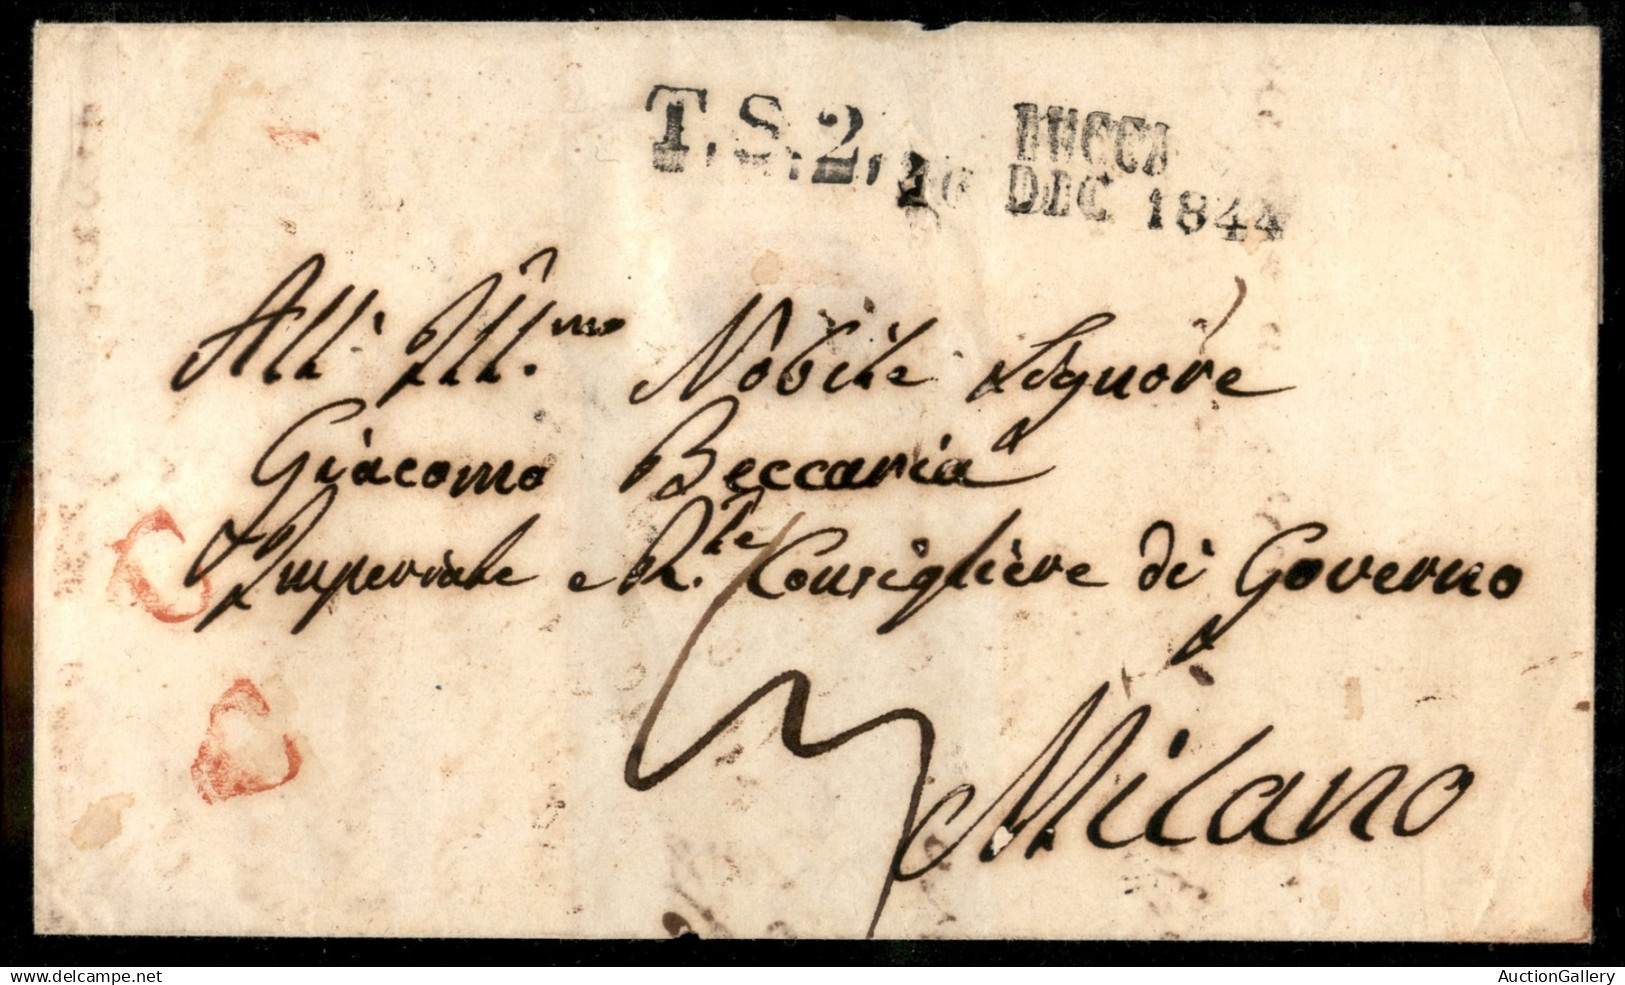 T.S.2.
LUCCA
DIC 1844
All' Ill.mo Nobile Signore
Giacomo Beccaria
Imperiale e R.le Consigliere di Governo
Milano
AuctionGallery